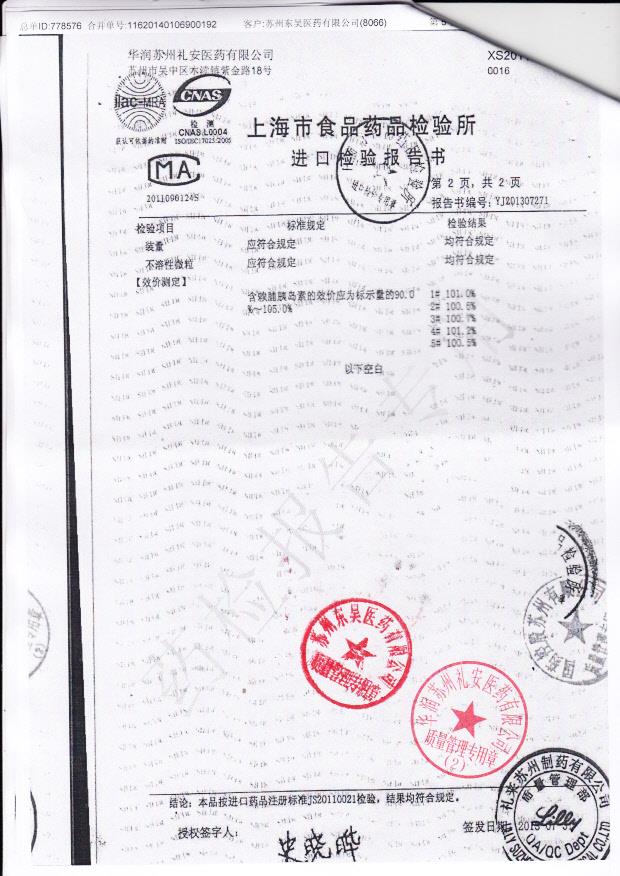 总单ID:778576 合并单号:11620140106900192 客户:苏州东吴医药有限公司(8066)
华润苏州礼安医药有限公司
苏州市吴中区木渎镇紫金路18号
0016
ilac-MRA
CNAS
检测
CNAS L0004
获认可依据的准则 ISO/IEC 17025:2005
MA
2011090124S
上海市食品药品检验所
进口检验报告书
第 2 页, 共 2 页
报告书编号: YJ201307271
检验项目 标准规定 检验结果
装量 应符合规定 均符合规定
不溶性微粒 应符合规定 均符合规定
【效价测定】
含赖脯胰岛素的效价应为标示量的90.0 1# 101.0%
%～105.0% 2# 100.6%
3# 100.7%
4# 101.2%
5# 100.5%
以下空白
药检报告专用
苏州东吴医药有限公司
华润苏州礼安医药有限公司
质量管理专用章
(2)
礼来苏州制药有限公司
质量管理部
Lilly
QA/QC Dept
结论: 本品按进口药品注册标准JS20110021检验, 结果均符合规定。
授权签字人: 史晓晔
签发日期: